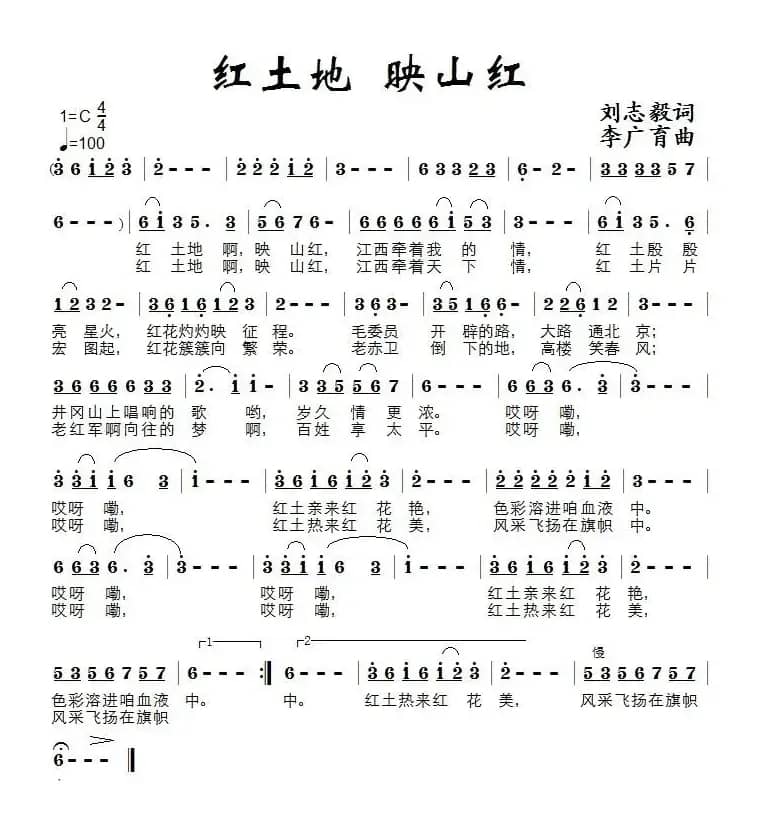 红土地 映山红
1=C 4/4
♩=100
刘志毅词
李广育曲
(3 6 1 2 3 | 2 - - - | 2 2 2 1 2 | 3 - - - | 6 3 3 2 3 | 6 - 2 - | 3 3 3 3 5 7 |
6 - - - ) | 6 1 3 5 . 3 | 5 6 7 6 - | 6 6 6 6 6 1 5 3 | 3 - - - | 6 1 3 5 . 6 |
红 土地 啊, 映 山 红, 江西牵着我 的 情, 红 土 殷 殷
红 土地 啊, 映 山 红, 江西牵着天 下 情, 红 土 片 片
1 2 3 2 - | 3 6 1 6 1 2 3 | 2 - - - | 3 6 3 - | 3 5 1 6 6 - | 2 2 6 1 2 | 3 - - - |
亮 星火, 红花灼灼映 征 程。 毛委员 开 辟的路, 大路 通北 京;
宏 图起, 红花簇簇向 繁 荣。 老赤卫 倒 下的地, 高楼 笑春 风;
3 6 6 6 6 3 3 | 2 . 1 1 - | 3 3 5 5 6 7 | 6 - - - | 6 6 3 6 . 3 | 3 - - - |
井冈山上唱响的 歌 哟, 岁久 情 更 浓。 哎呀 嘞,
老红军啊向往的 梦 啊, 百姓 享 太 平。 哎呀 嘞,
3 3 1 1 6 3 | 1 - - - | 3 6 1 6 1 2 3 | 2 - - - | 2 2 2 2 2 1 2 | 3 - - - |
哎呀 嘞, 红土亲来红 花 艳, 色彩溶进咱血液 中。
哎呀 嘞, 红土热来红 花 美, 风采飞扬在旗帜 中。
6 6 3 6 . 3 | 3 - - - | 3 3 1 1 6 3 | 1 - - - | 3 6 1 6 1 2 3 | 2 - - - |
哎呀 嘞, 哎呀 嘞, 红土亲来红 花 艳,
哎呀 嘞, 哎呀 嘞, 红土热来红 花 美,
1 2 慢
5 3 5 6 7 5 7 | 6 - - - :‖ 6 - - - | 3 6 1 6 1 2 3 | 2 - - - | 5 3 5 6 7 5 7 |
色彩溶进咱血液 中。 中。 红土热来红 花 美, 风采飞扬在旗帜
风采飞扬在旗帜
6 - - - ‖